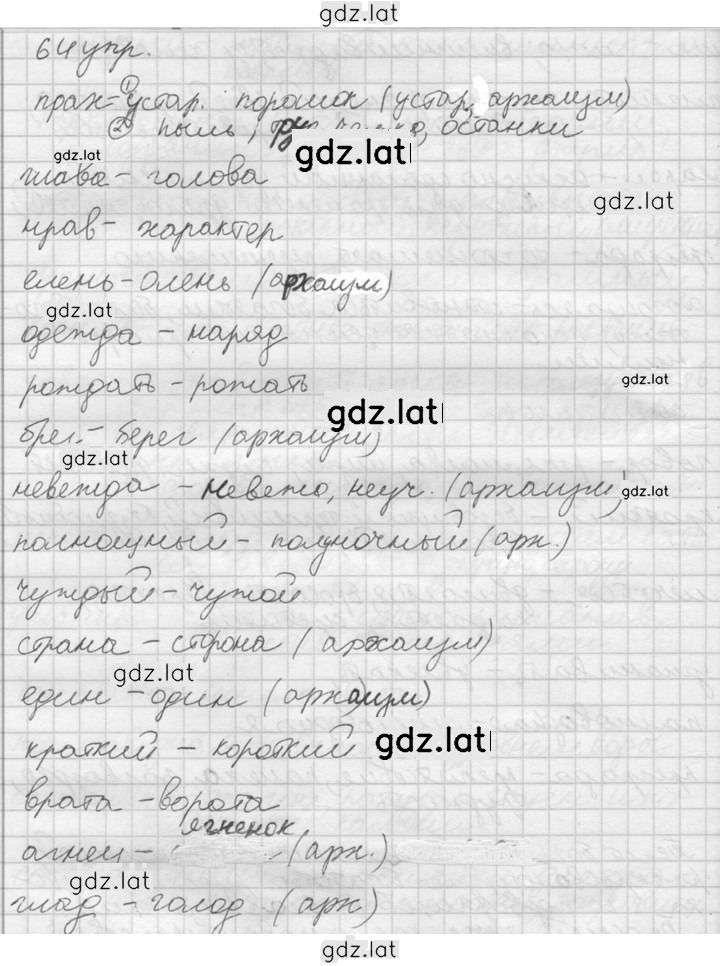 gdz.lat
64 упр.
прах-①устар. порошок (устар, архаизм)
② пыль, останки
gdz.lat
gdz.lat
глава - голова
gdz.lat
нрав - характер
елень - олень (архаизм)
gdz.lat
одежда - наряд
gdz.lat
рождать - рожать
gdz.lat
брег. - берег (архаизм)
gdz.lat
невежда - невежа, неуч. (архаизм)
gdz.lat
полнощный - полуночный (арх.)
чуждый - чужой
страна - сторона (архаизм)
gdz.lat
един - один (архаизм)
краткий - короткий
gdz.lat
врата - ворота
агнец - ягненок (арх.)
gdz.lat
глад - голод (арх)
gdz.lat